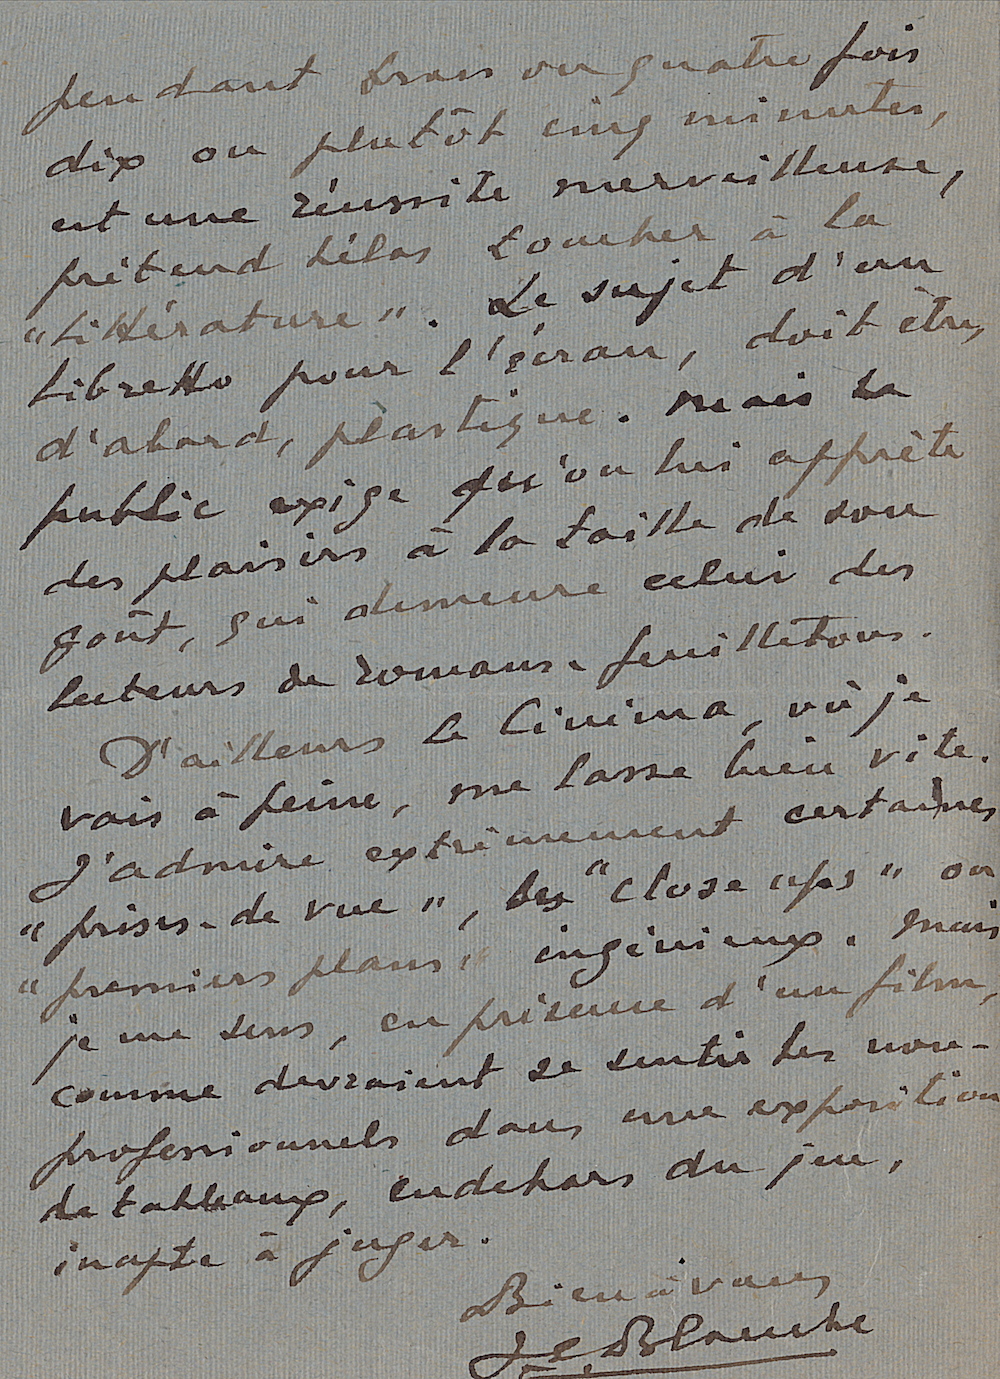 pendant trois ou quatre fois
dix ou plutôt cinq minutes,
est une réussite merveilleuse,
prétend hélas toucher à la
"Littérature". Le sujet d'un
libretto pour l'écran, doit être,
d'abord, plastique. Mais le
public exige qu'on lui apprête
des plaisirs à la taille de son
goût, qui demeure celui des
lecteurs de romans-feuilletons.
D'ailleurs le Cinéma, où je
vois à peine, me lasse bien vite.
J'admire extrêmement certaines
"prises-de vue", les "close ups" ou
"premiers plans" ingénieux. Mais
je me sens, en présence d'un film,
comme devraient se sentir les non-
professionnels dans une exposition
de tableaux, endehors du jeu,
inapte à juger.
Bien à vous
J. E. Blanche